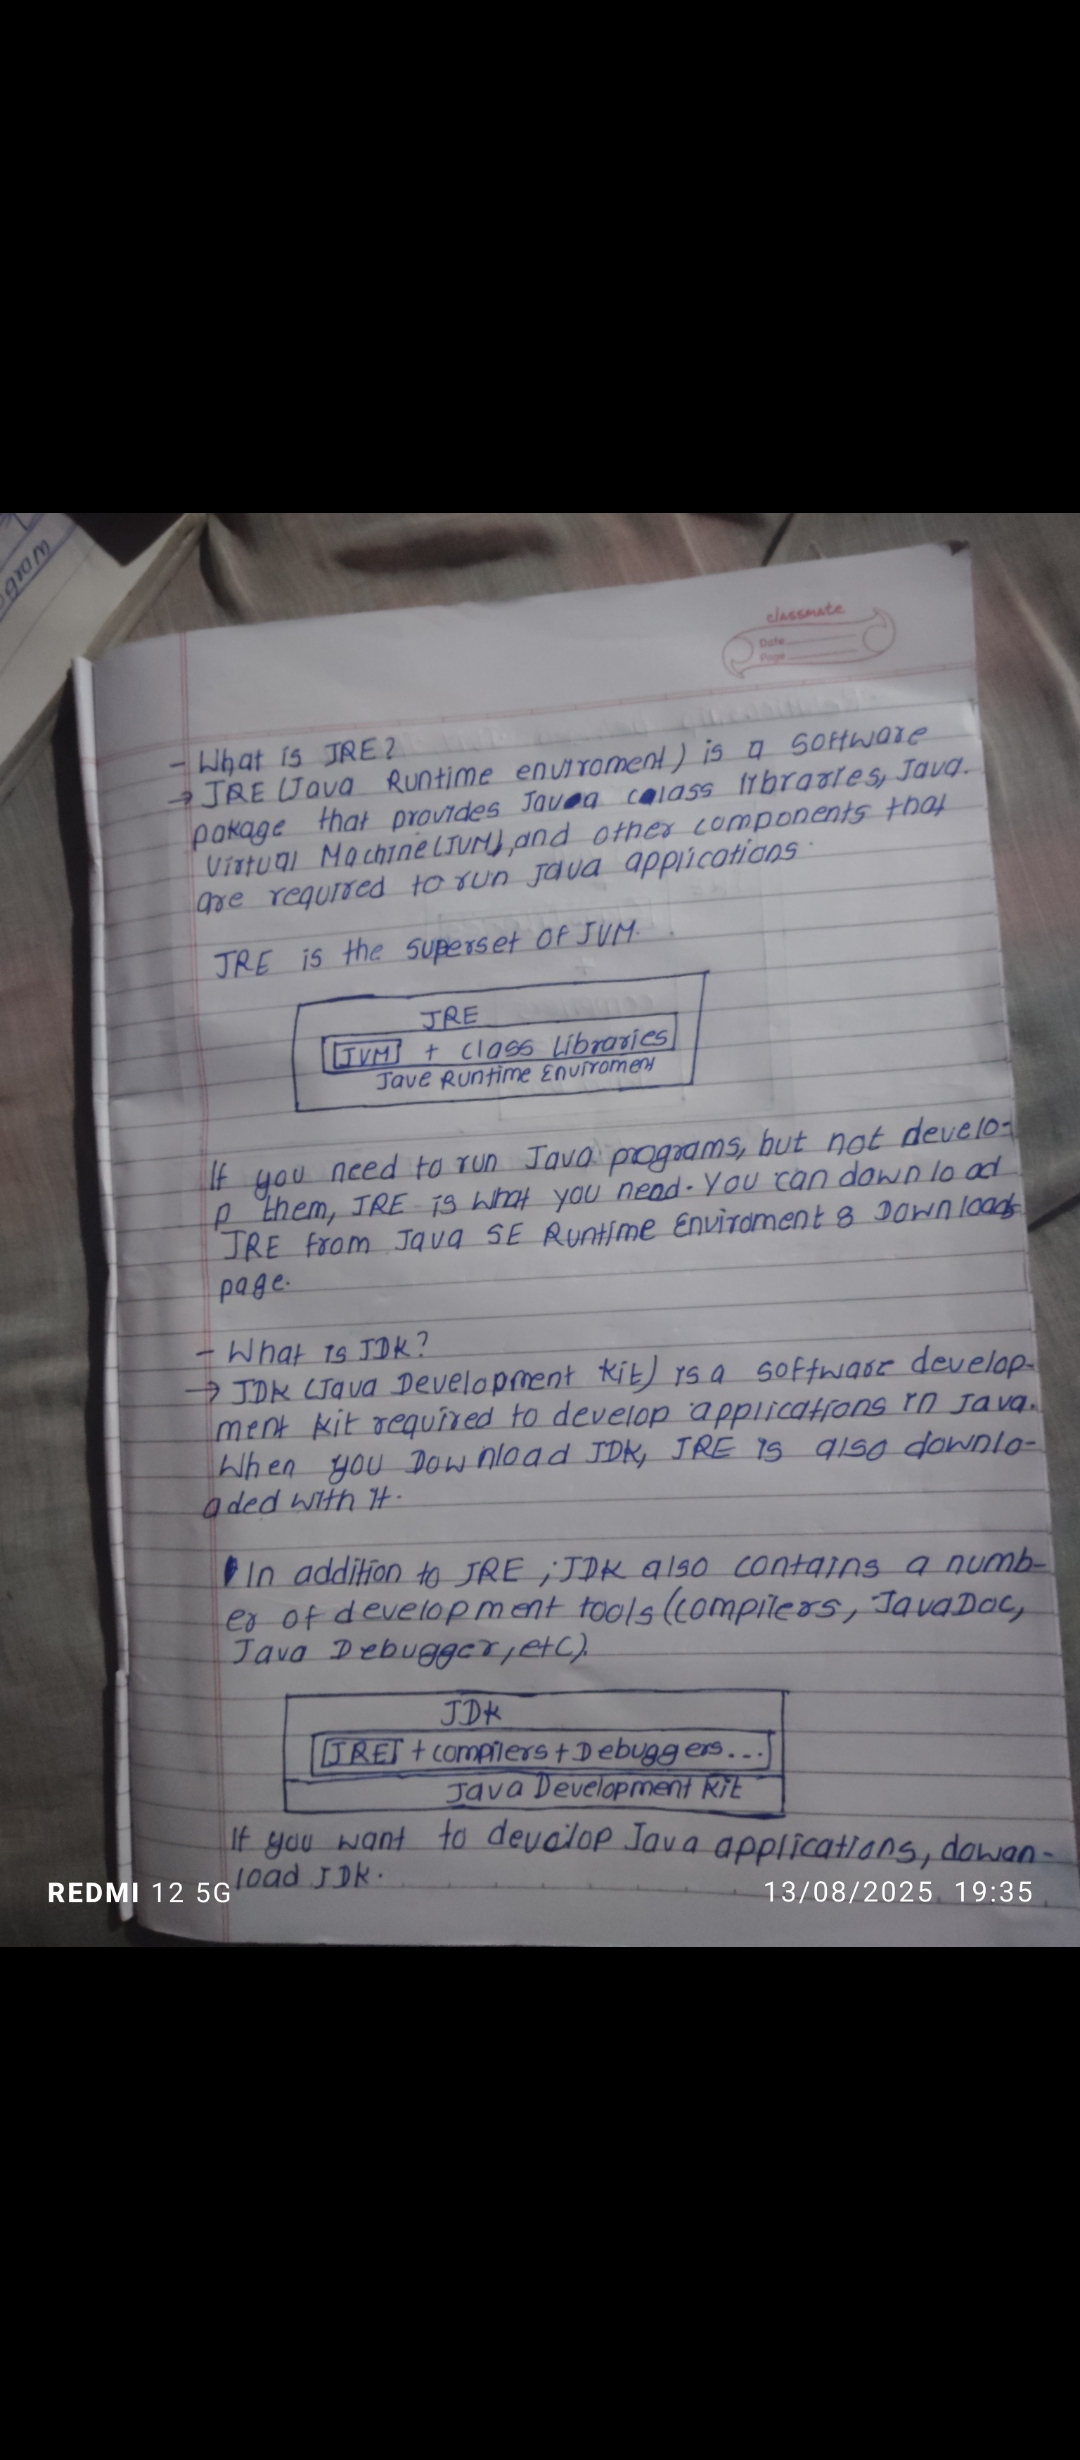 ogram
classmate
Date
Page
- What is JRE?
→ JRE (Java Runtime enviroment) is a software
pakage that provides Java calass libraries, Java.
Virtual Machine (JVM), and other components that
are required to run Java applications.
JRE is the superset of JVM.
JRE
JVM + class Libraries
Jave Runtime Enviroment
If you need to run Java programs, but not develo-
p them, JRE is what you need. You can download
JRE from Java SE Runtime Enviroment 8 Downloads
page.
- What is JDK?
→ JDK (Java Development Kit) is a software develop-
ment kit required to develop applications in Java.
When you Download JDK, JRE is also downlo-
aded with it.
In addition to JRE ; JDK also contains a numb-
er of development tools (compilers, JavaDoc,
Java Debugger, etc).
JDK
JRE + compilers + Debuggers...
Java Development Kit
If you want to develop Java applications, dowan-
load JDK.
REDMI 12 5G
13/08/2025 19:35